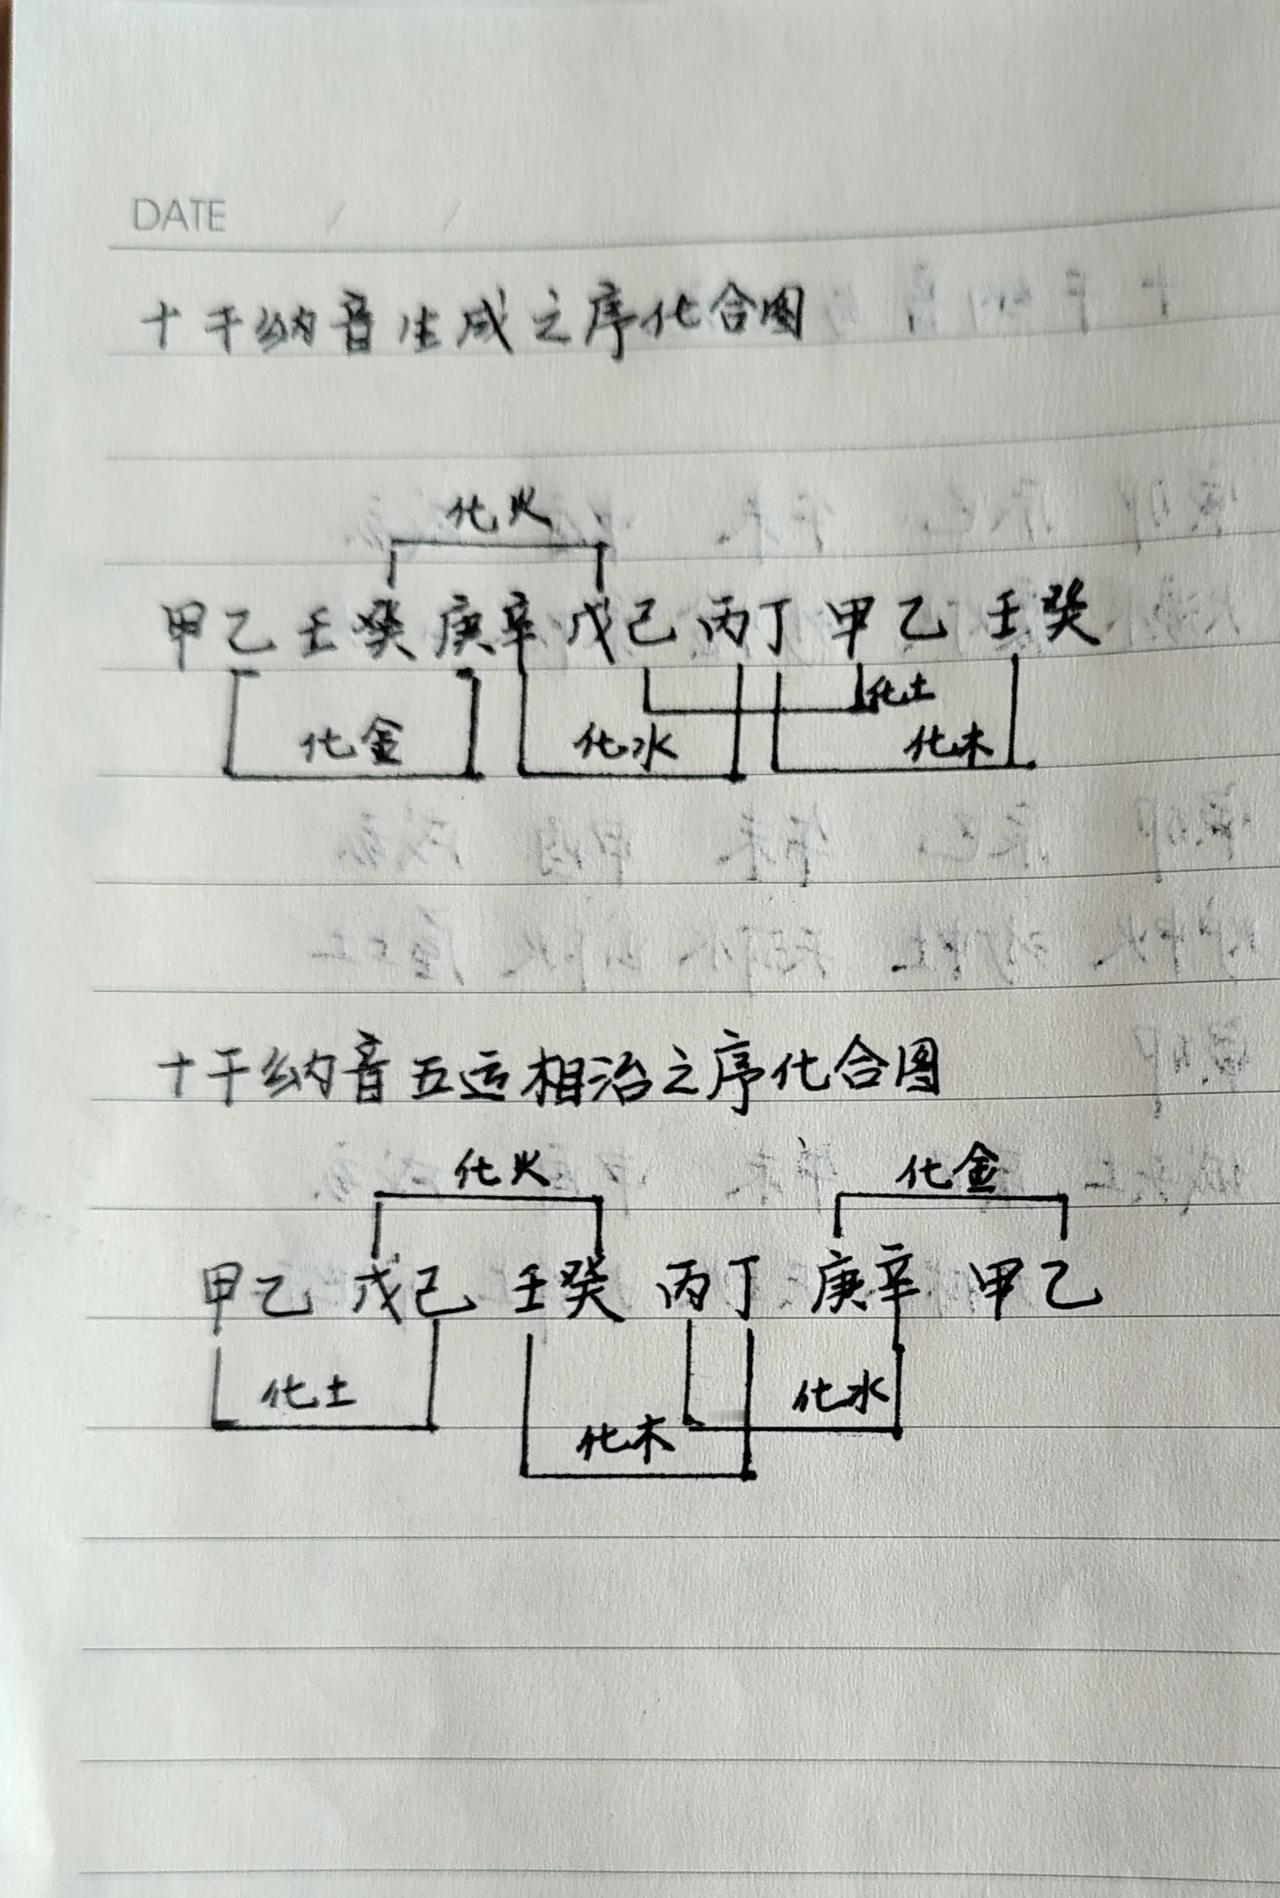 DATE / /
十干纳音生成之序化合图
化火
甲乙 壬癸 庚辛 戊己 丙丁 甲乙 壬癸
化土
化金 化水 化木
十干纳音五运相治之序化合图
化火 化金
甲乙 戊己 壬癸 丙丁 庚辛 甲乙
化土 化水
化木